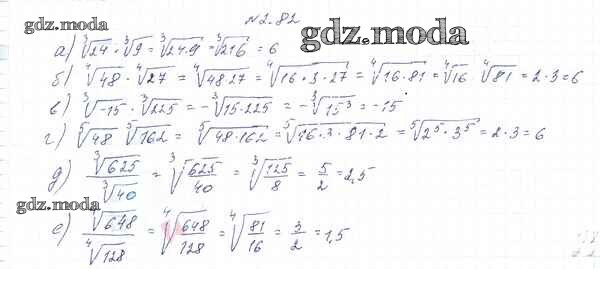 gdz.moda
№2.82
gdz.moda
а) ∛24 · ∛9 = ∛24·9 = ∛216 = 6
б) ∜48 · ∜27 = ∜48·27 = ∜16·3·27 = ∜16·81 = ∜16 ∜81 = 2·3=6
в) ∛-15 · ∛225 = -∛15·225 = -∛15³ = -15
г) ⁵√48 ⁵√162 = ⁵√48·162 = ⁵√16·3·81·2 = ⁵√2⁵·3⁵ = 2·3=6
д) ∛625 / ∛40 = ∛625/40 = ∛125/8 = 5/2 = 2,5
gdz.moda
е) ∜648 / ∜128 = ∜648/128 = ∜81/16 = 3/2 = 1,5